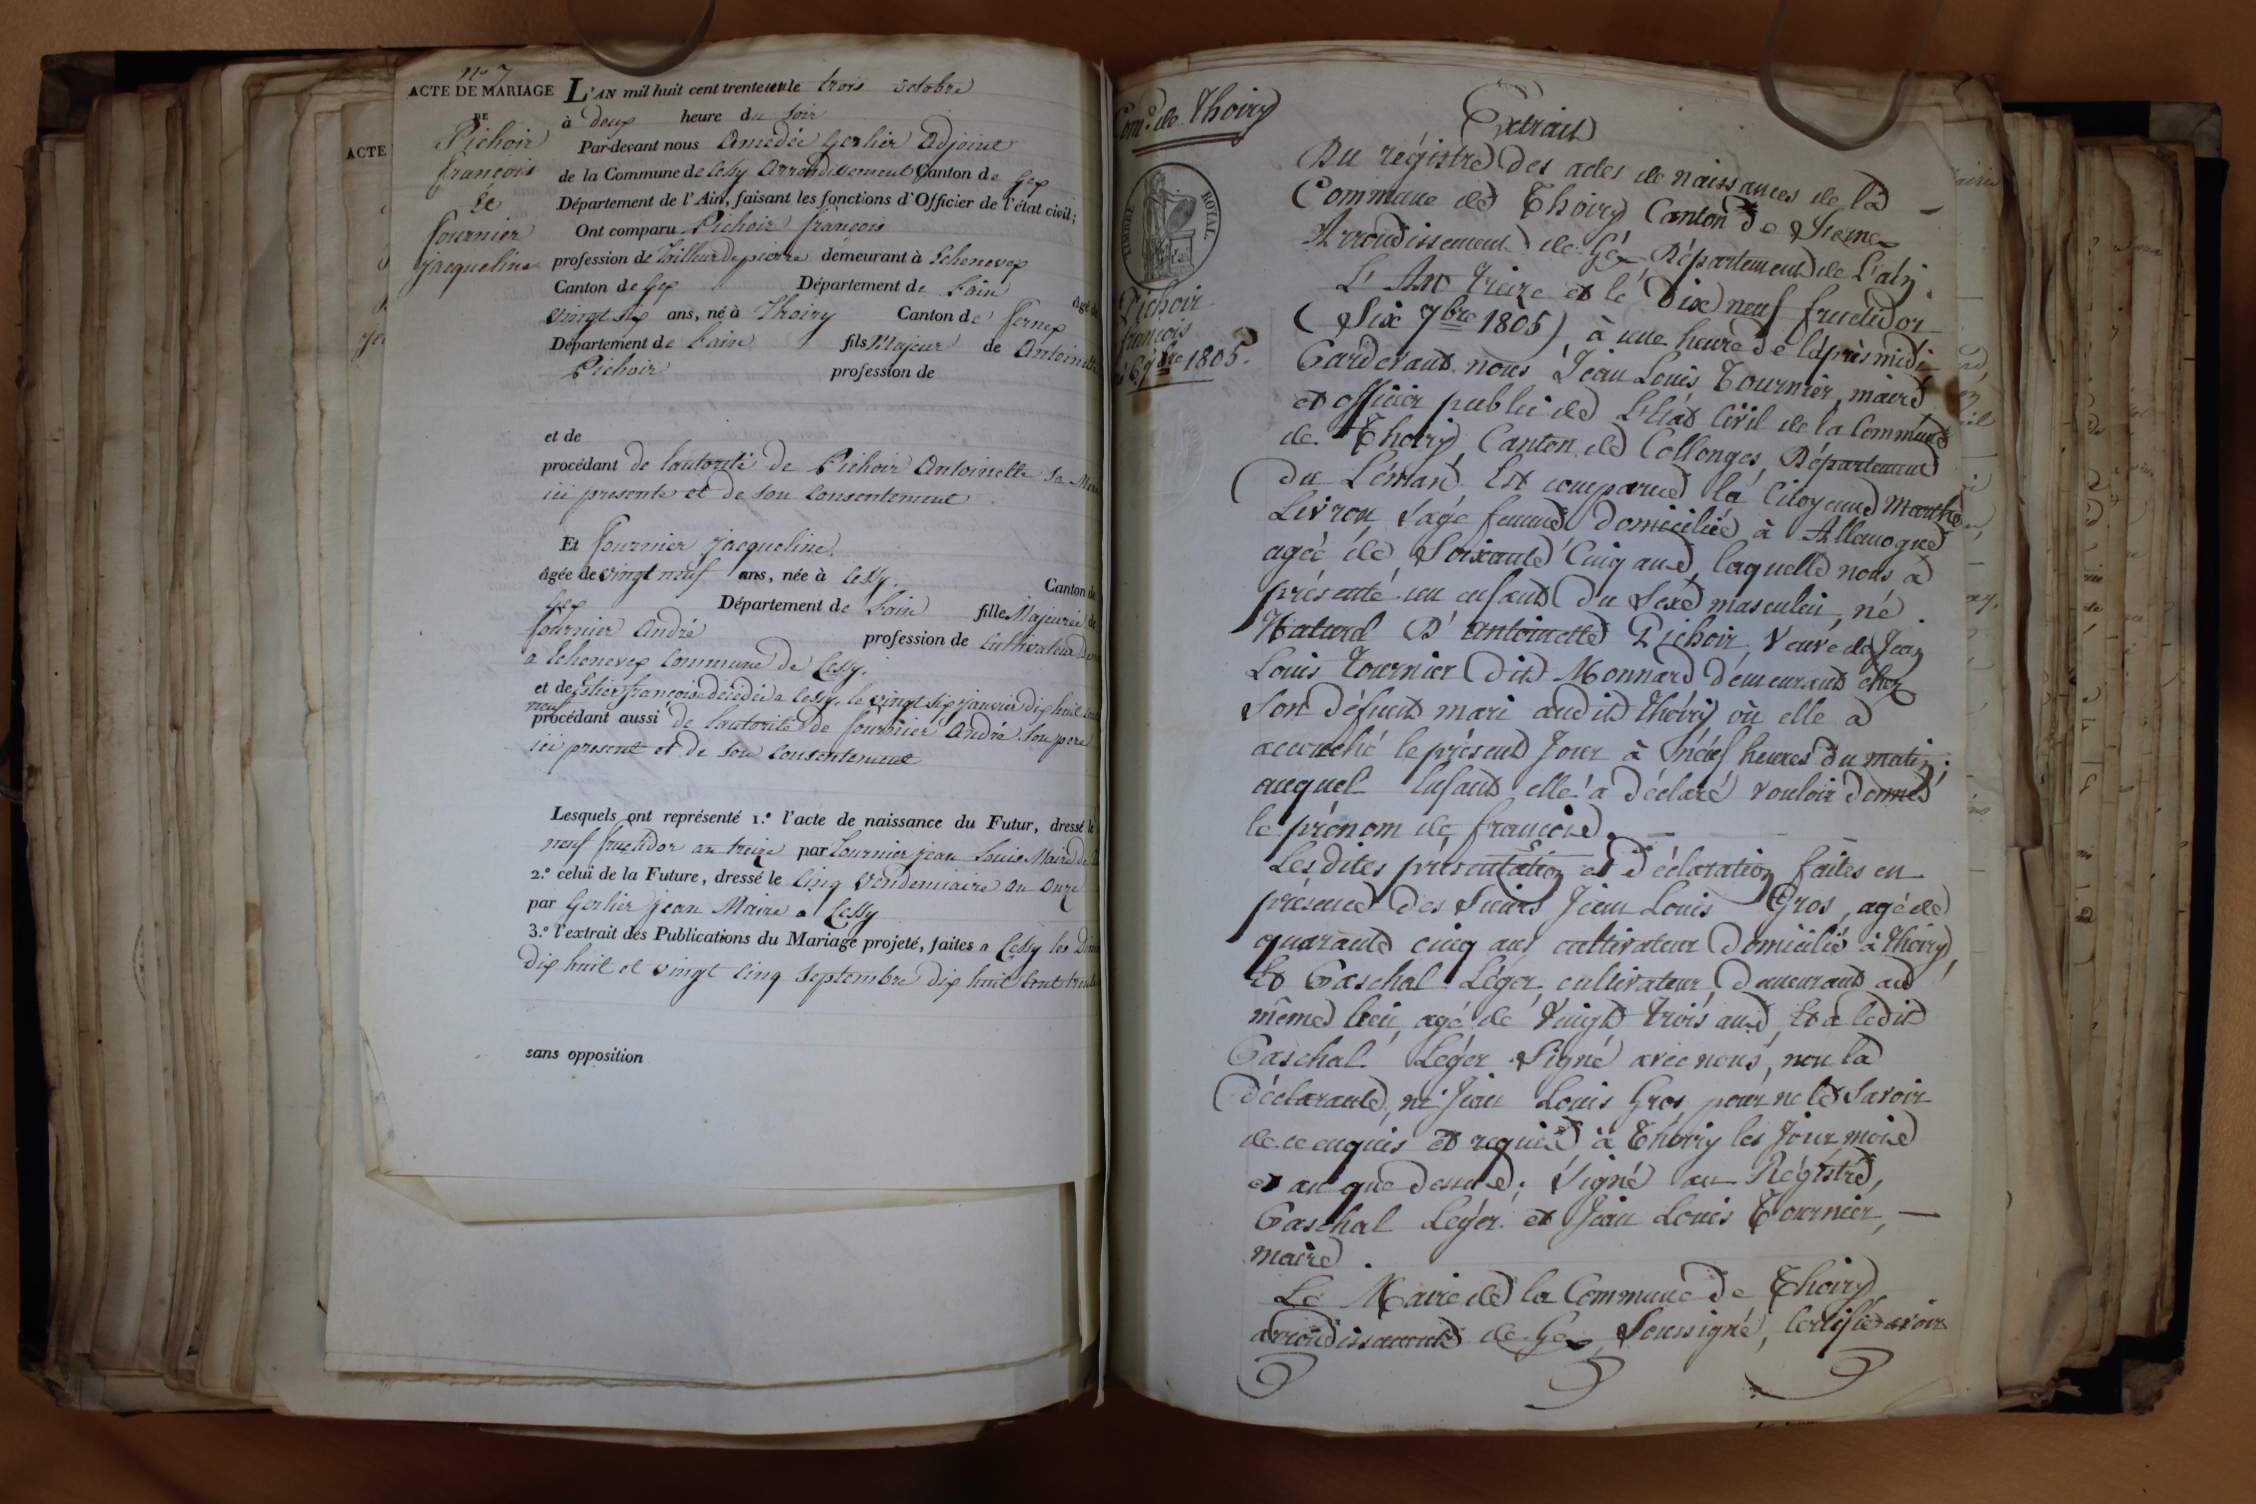 n° 7
ACTE DE MARIAGE
DE
Pichoir
françois
&
fournier
jacqueline
L'AN mil huit cent trente et le trois octobre
à deux heure du soir
Par-devant nous Amedée Gerlier Adjoint
de la Commune de Cessy Arrondissement Canton de Gex
Département de l'Ain, faisant les fonctions d'Officier de l'état civil;
Ont comparu Pichoir françois
profession de Tailleur de pierre demeurant à Echenevex
Canton de Gex Département de Lain âgé de
vingt six ans, né à Thoiry Canton de fernex
Département de Lain fils Majeur de Antoinette
Pichoir profession de
et de
procédant de lautorité de Pichoir Antoinette Sa Mere
ici presente et de son consentement
Et fournier jacqueline
âgée de vingt neuf ans, née à Cessy. Canton de
Gex Département de Lain fille Majeure de
fournier André profession de Cultivateur
a Echenevex Commune de Cessy.
et de françoise décédée a Cessy, le vingt six janvier dix huit
neuf
procédant aussi de lautorité de fournier André son pere
ici present et de son consentement
Lesquels ont représenté 1.º l'acte de naissance du Futur, dressé le
neuf fructidor an treize par Tournier jean Louis Maire de
2.º celui de la Future, dressé le cinq Vendemiaire an onze
par Gerlier jean Maire a Cessy
3.º l'extrait des Publications du Mariage projeté, faites a Cessy les
dix huit et vingt cinq Septembre dix huit cent
sans opposition
ACTE
Com.ne de Thoiry
TIMBRE ROYAL
Pichoir
françois
6 7bre 1805.
Extrait
Du régistre des actes de naissances de la
Commune de Thoiry Canton de fernex
Arrondissement de Gex Département de L'ain.
L'An Treize et le Dix neuf fructidor
(Six 7bre 1805), à une heure de l'après midi
Pardevant nous Jean Louis Tournier, maire
et officier public de L'état Civil de la Commune
de Thoiry, Canton de Collonges, Département
du Léman. Est comparue la Citoyenne Marthe
Livron, Sage femme domiciliée à Allemogne
agée de Soixante Cinq ans, laquelle nous à
présenté un enfant du Sexe masculin, né
Naturel D'antoinette Pichoir, Veuve de Jean
Louis Tournier dit Monnard demeurant chez
Son défunt mari audit Thoiry où elle a
accouché le présent Jour à neuf heures du matin;
auquel Enfant elle a déclaré vouloir donner
le prénom de françois.
Lesdites présentation et déclaration faites en
présence des Sieurs Jean Louis Gros, agé de
quarante cinq ans cultivateur Domicilié à Thoiry,
Et Paschal Léger cultivateur, demeurant au
même lieu, agé de Vingt trois ans, Et a ledit
Paschal Léger Signé avec nous, non la
déclarante, ni Jean Louis Gros, pour ne le Savoir
de ce enquis et requis à Thoiry les Jour mois
et an que dessus. Signé au Régistre,
Paschal Léger et Jean Louis Tournier, —
maire.
Le Maire de la Commune de Thoiry
arrondissement de Gex, Soussigné, Certifie avoir